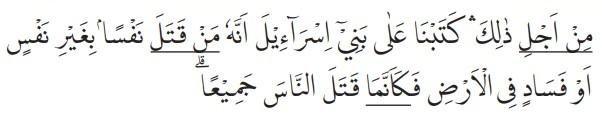 مِنْ اَجْلِ ذٰلِكَ ۛؔ كَتَبْنَا عَلٰى بَنِيْٓ اِسْرَآءِيْلَ اَنَّهٗ مَنْ قَتَلَ نَفْسًاۢ بِغَيْرِ نَفْسٍ
اَوْ فَسَادٍ فِى الْاَرْضِ فَكَاَنَّمَا قَتَلَ النَّاسَ جَمِيْعًا ؕ